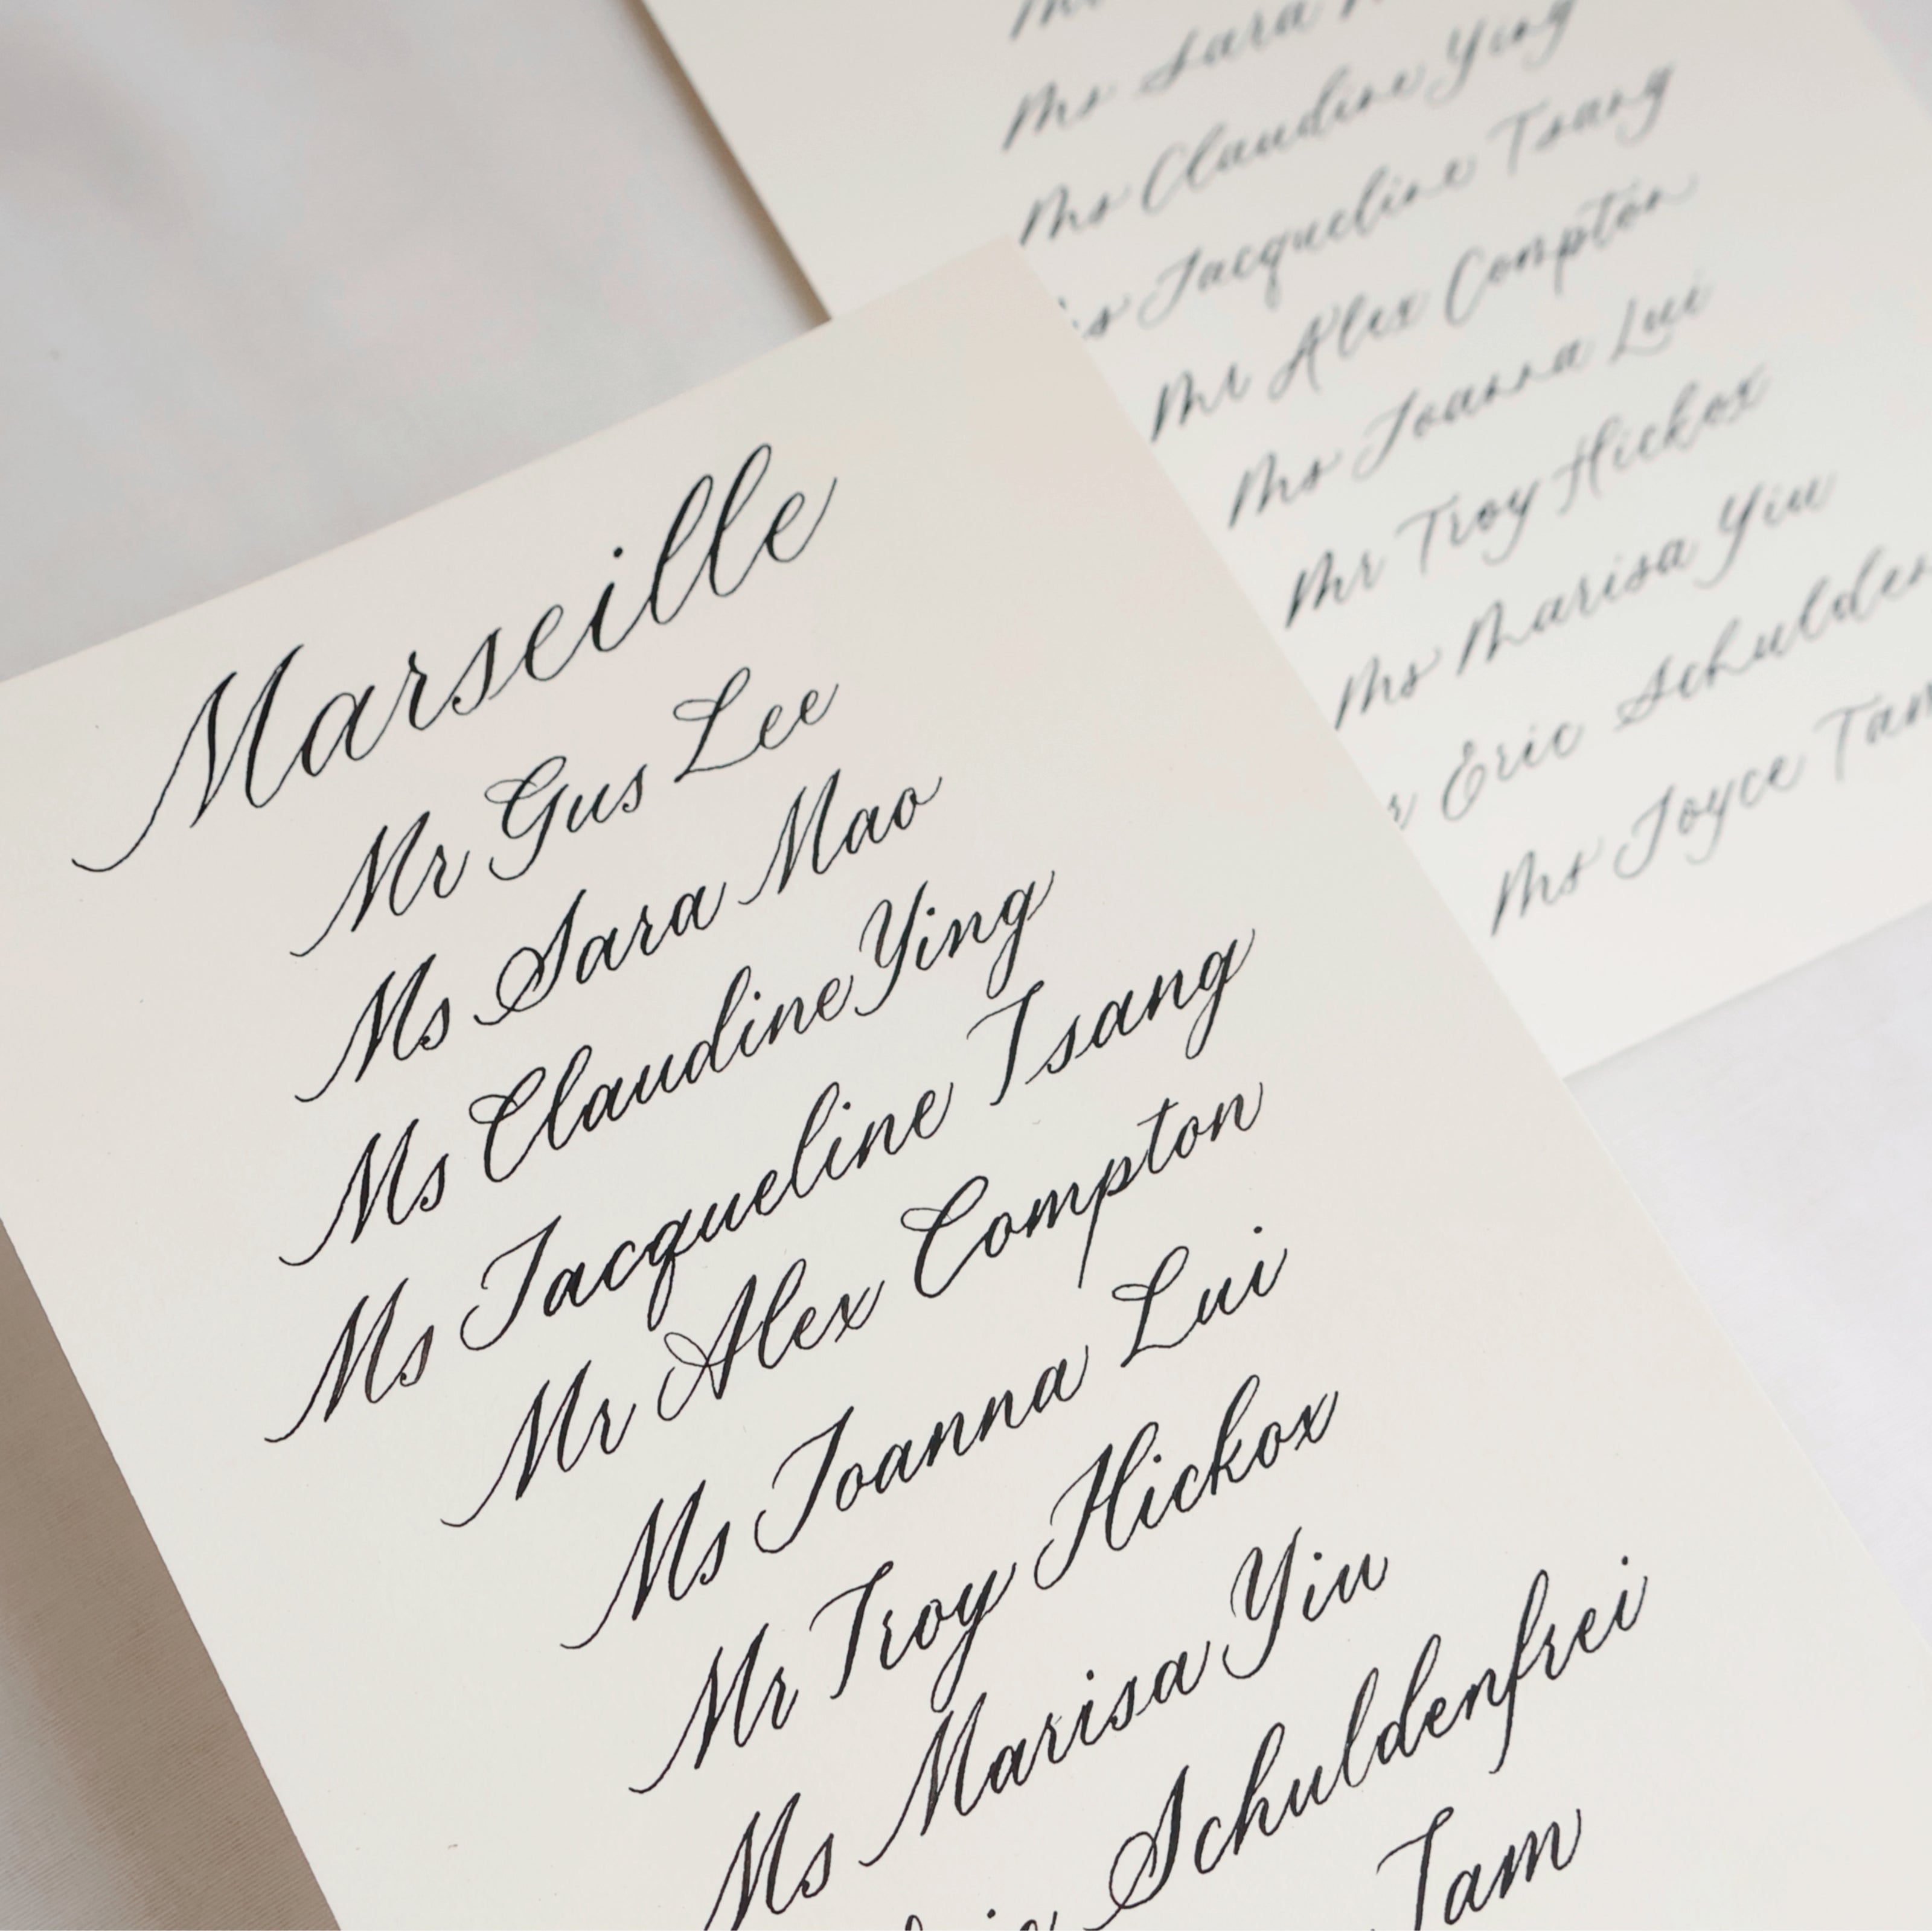 Marseille
Mr Gus Lee
Ms Sara Mao
Ms Claudine Ying
Ms Jacqueline Tsang
Mr Alex Compton
Ms Joanna Lui
Mr Troy Hickox
Ms Marisa Yiu
Schuldenfrei
Tam
Ms Sara
Ms Claudine Ying
Jacqueline Tsang
Mr Alex Compton
Ms Joanna Lui
Mr Troy Hickox
Ms Marisa Yiu
Eric
Ms Joyce